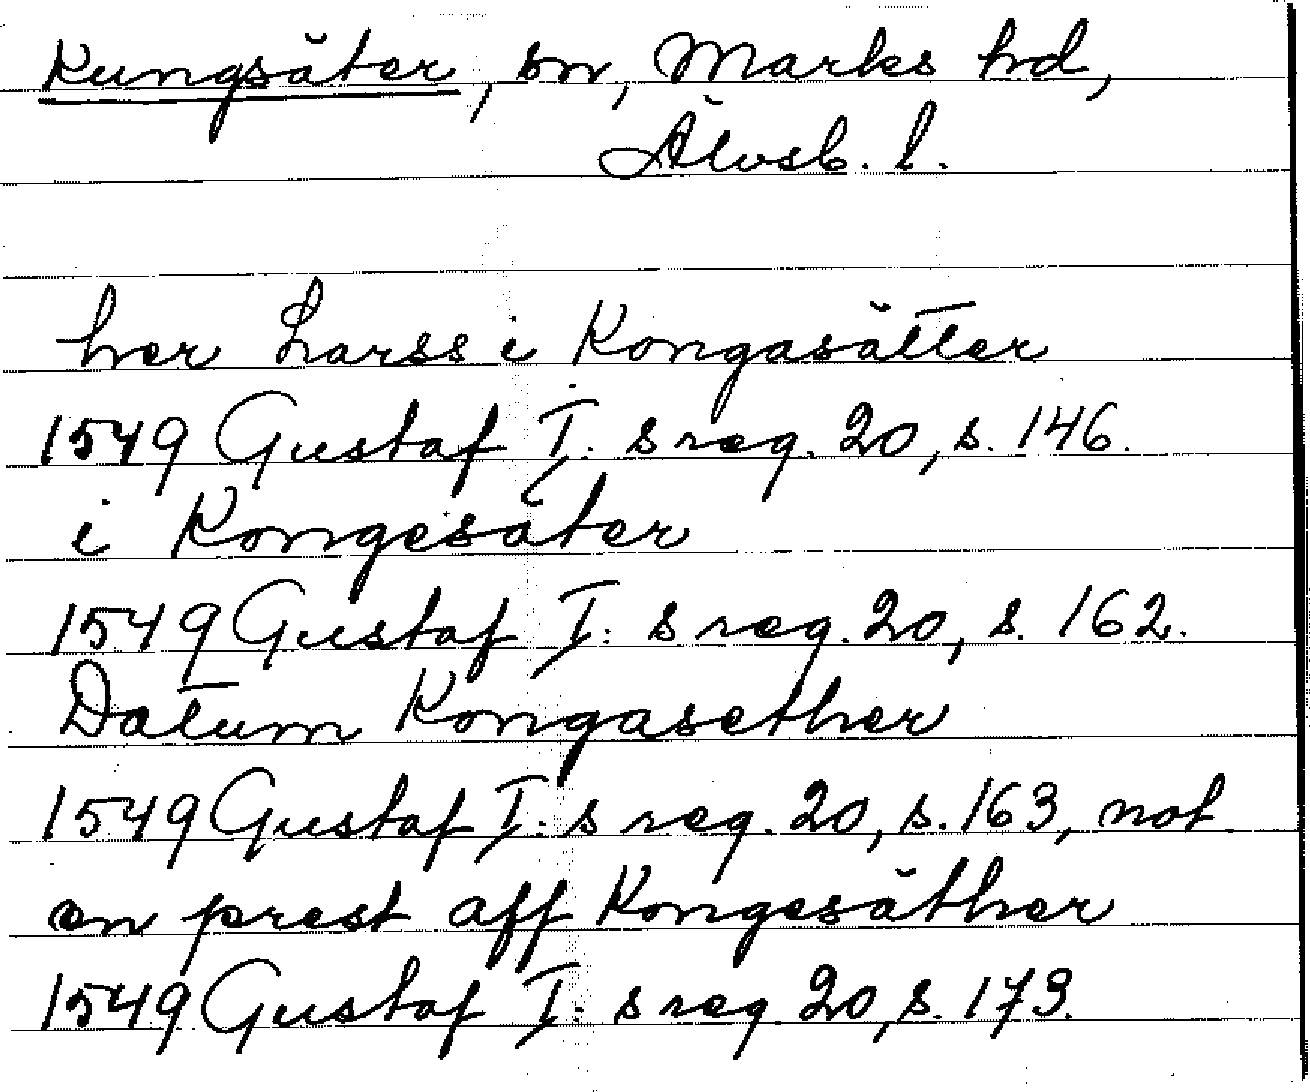 Kungsäter, sn, Marks hd,
Älvsb. l.
her Larss i Kongasätter
1549 Gustaf I:s reg. 20, s. 146.
i Kongesäter
1549 Gustaf I:s reg. 20, s. 162.
Datum Kongasether
1549 Gustaf I:s reg. 20, s. 163, not
en prest aff Kongesäther
1549 Gustaf I:s reg 20, s. 173.